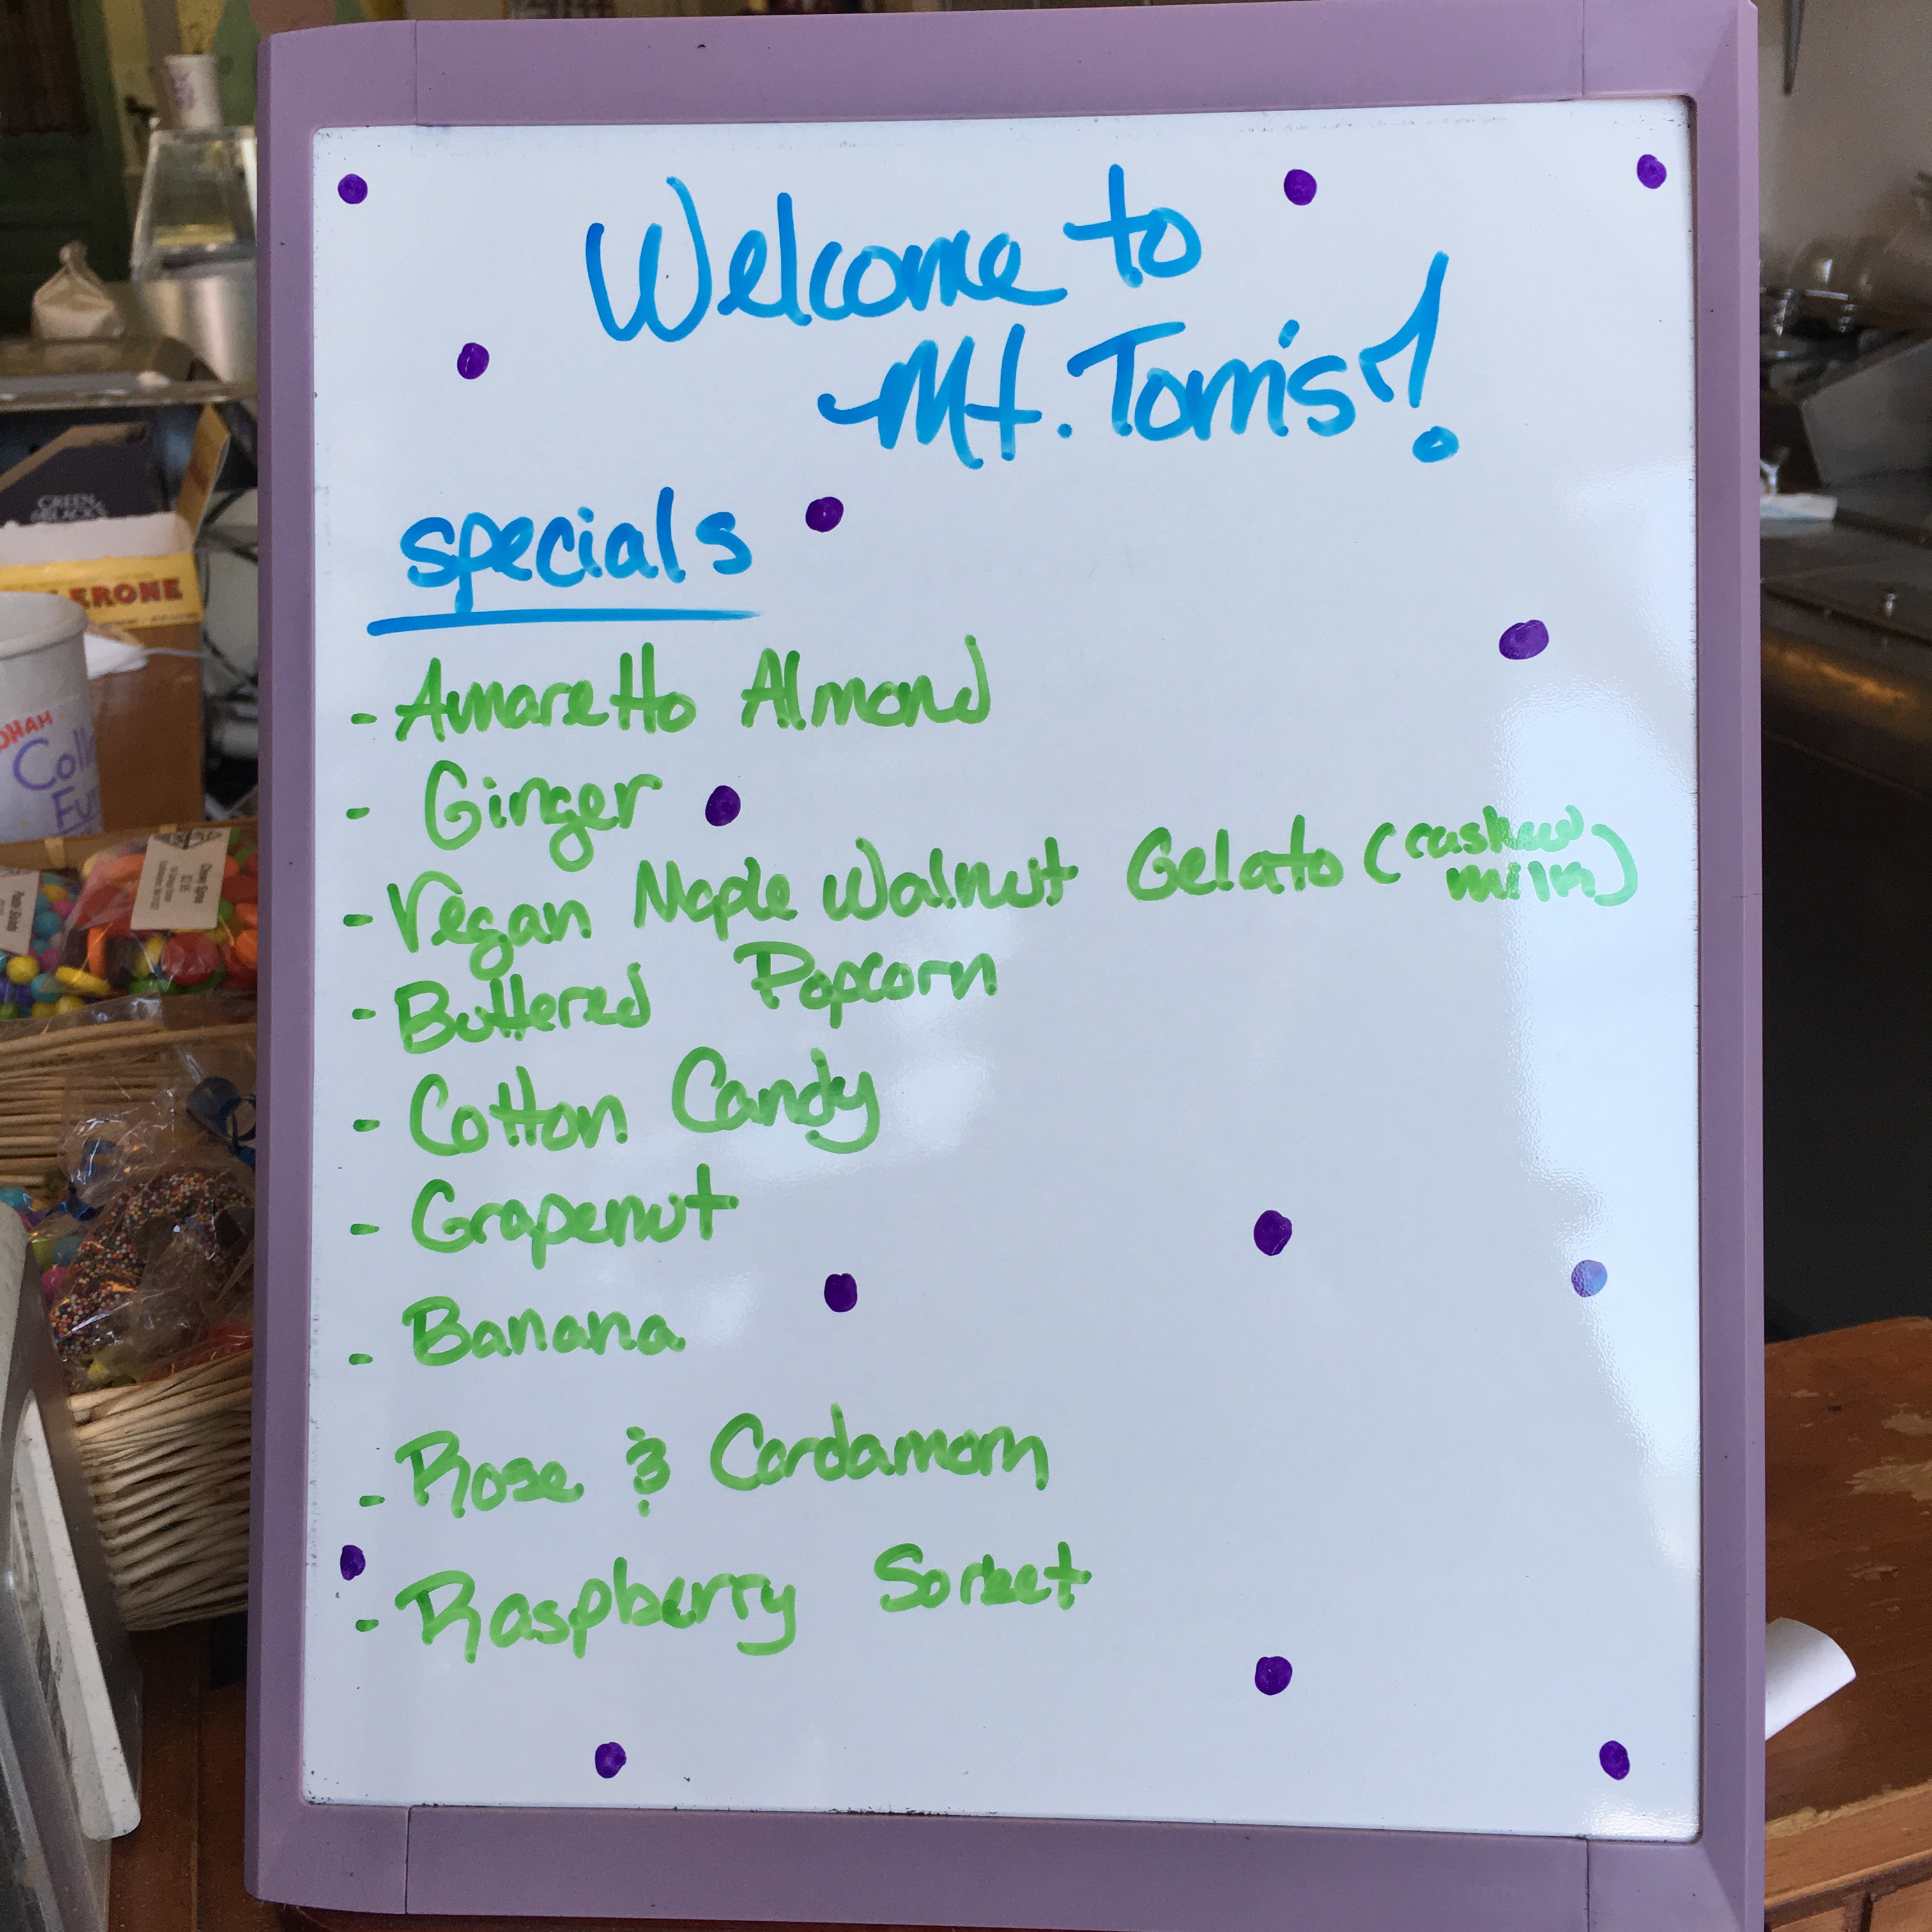 Welcome to
Mt. Tom's!
specials
- Amaretto Almond
- Ginger
- Vegan Maple Walnut Gelato (cashew
milk)
- Buttered Popcorn
- Cotton Candy
- Grapenut
- Banana
- Rose & Cardamom
- Raspberry Sorbet
GREEN
& BLACK'S
LERONE
Coll
Fu